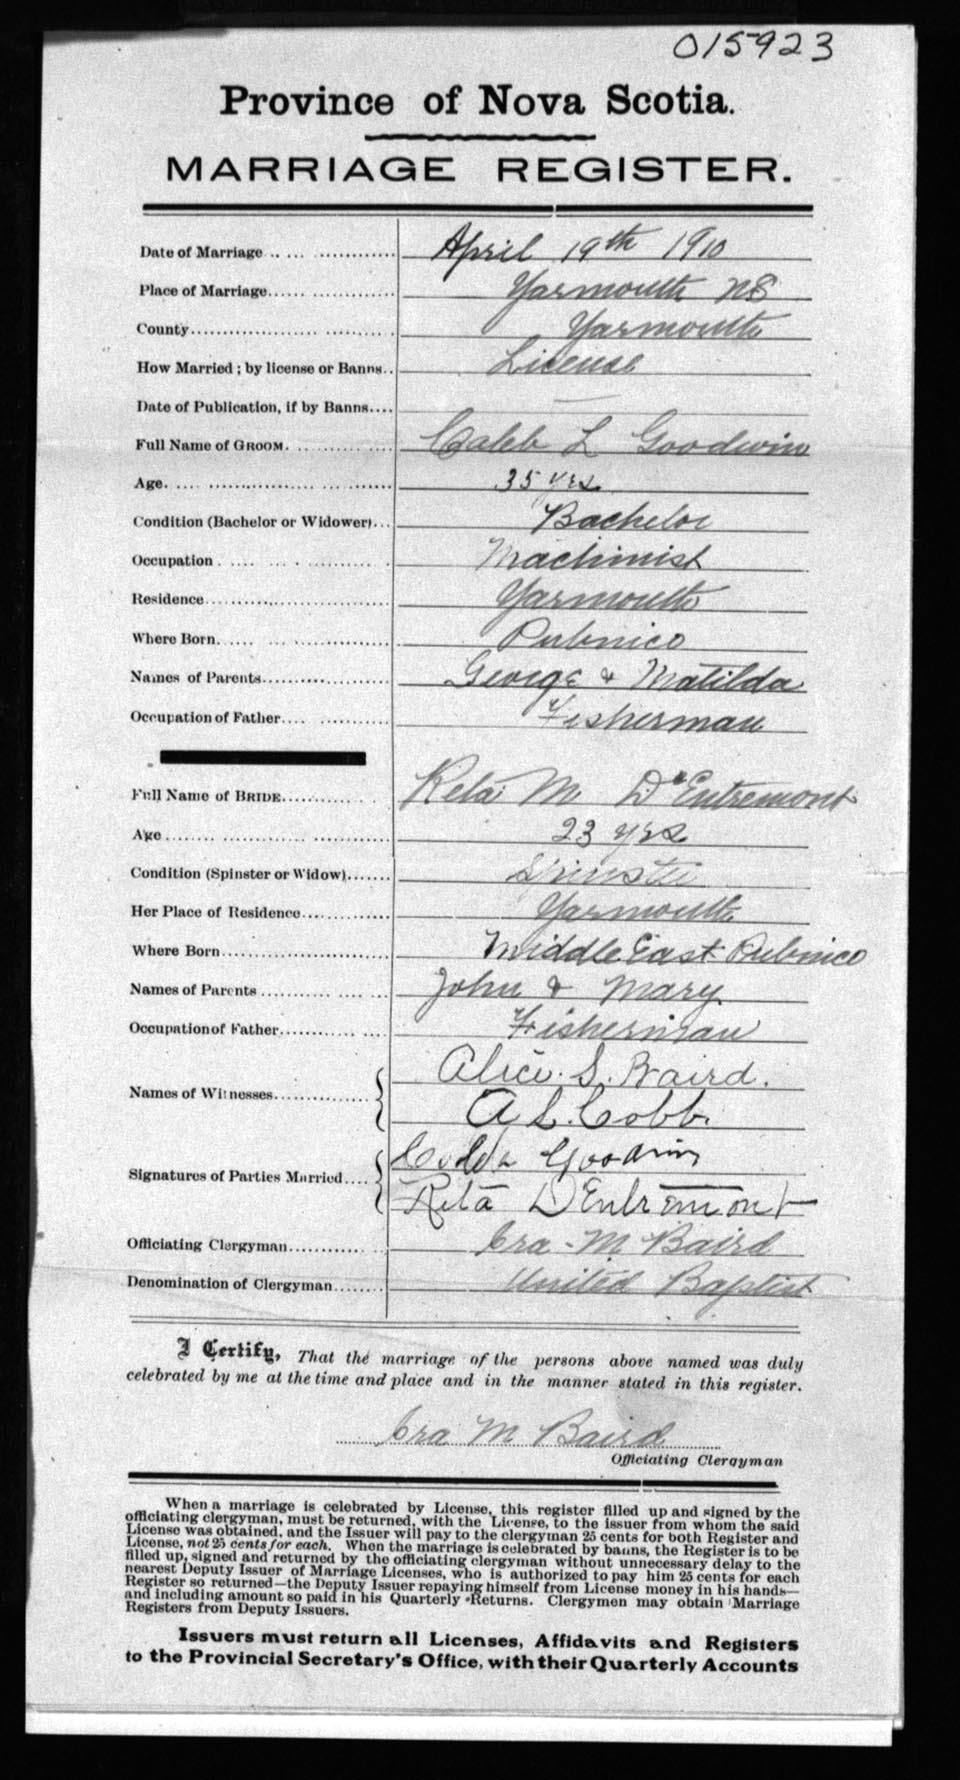 015923
Province of Nova Scotia.
MARRIAGE REGISTER.
Date of Marriage April 19th 1910
Place of Marriage Yarmouth NS
County Yarmouth
How Married; by license or Banns.. License
Date of Publication, if by Banns.... —
Full Name of GROOM. Caleb L Goodwin
Age. 35 yrs
Condition (Bachelor or Widower)... Bachelor
Occupation Machinist
Residence Yarmouth
Where Born. Pubnico
Names of Parents George & Matilda
Occupation of Father Fisherman
Full Name of BRIDE Reta M D'Entremont
Age 23 yrs
Condition (Spinster or Widow) Spinster
Her Place of Residence Yarmouth
Where Born Middle East Pubnico
Names of Parents John & Mary
Occupation of Father Fisherman
Names of Witnesses Alice. S. Baird.
A L. Cobb.
Signatures of Parties Married Goodwin
Reta D Entremont
Officiating Clergyman Ira M Baird
Denomination of Clergyman United Baptist
I Certify, That the marriage of the persons above named was duly
celebrated by me at the time and place and in the manner stated in this register.
Ira M Baird
Officiating Clergyman
When a marriage is celebrated by License, this register filled up and signed by the
officiating clergyman, must be returned, with the License, to the issuer from whom the said
License was obtained, and the Issuer will pay to the clergyman 25 cents for both Register and
License, not 25 cents for each. When the marriage is celebrated by banns, the Register is to be
filled up, signed and returned by the officiating clergyman without unnecessary delay to the
nearest Deputy Issuer of Marriage Licenses, who is authorized to pay him 25 cents for each
Register so returned—the Deputy Issuer repaying himself from License money in his hands—
and including amount so paid in his Quarterly Returns. Clergymen may obtain Marriage
Registers from Deputy Issuers.
Issuers must return all Licenses, Affidavits and Registers
to the Provincial Secretary's Office, with their Quarterly Accounts